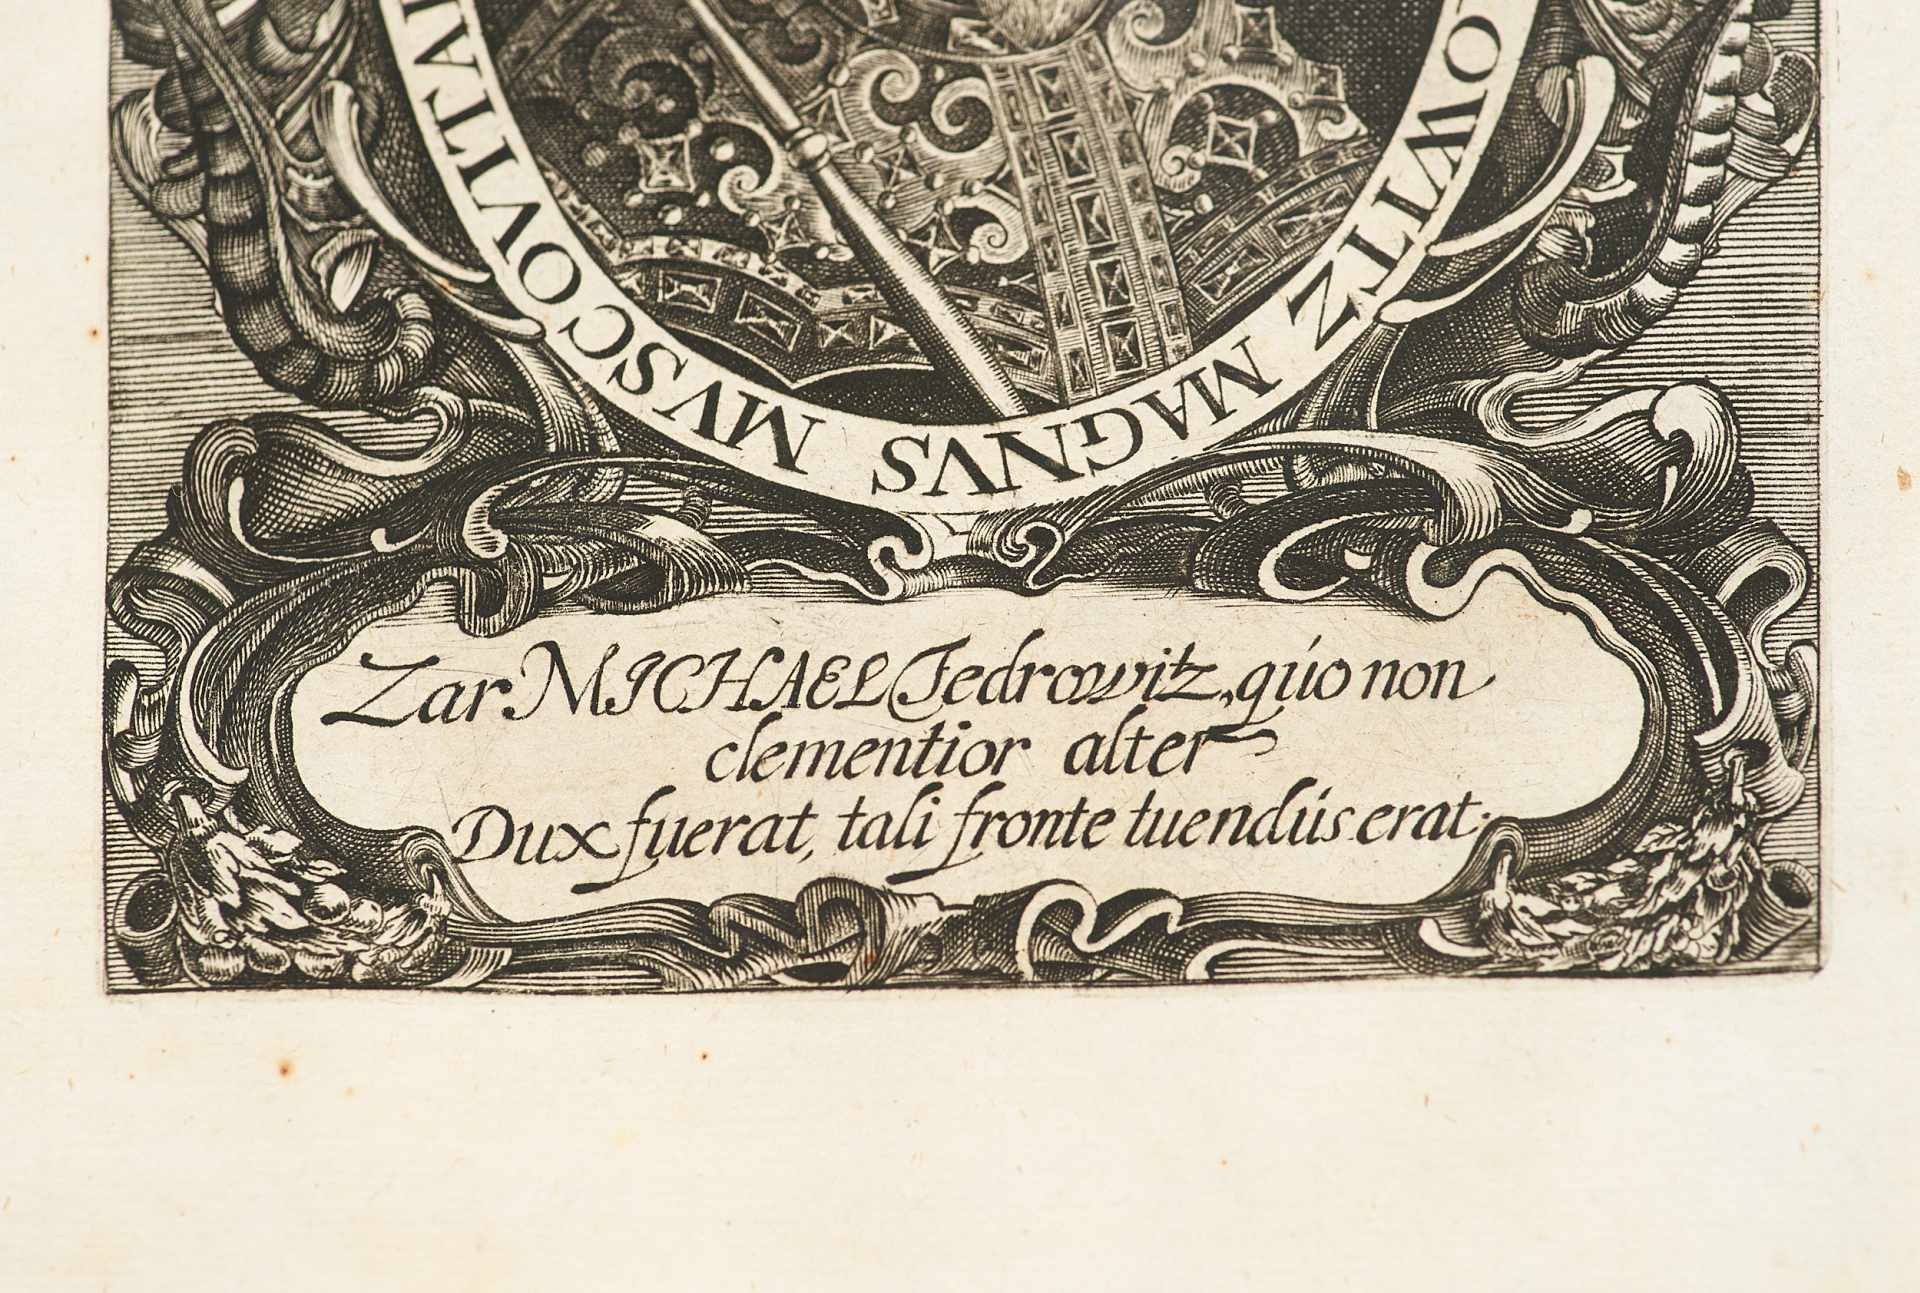 OWITZ MAGNVS MVSCOVITA
Zar MICHAEL Fedrowitz, qúo non
clementior alter
Dux fuerat, tali fronte tuendús erat.